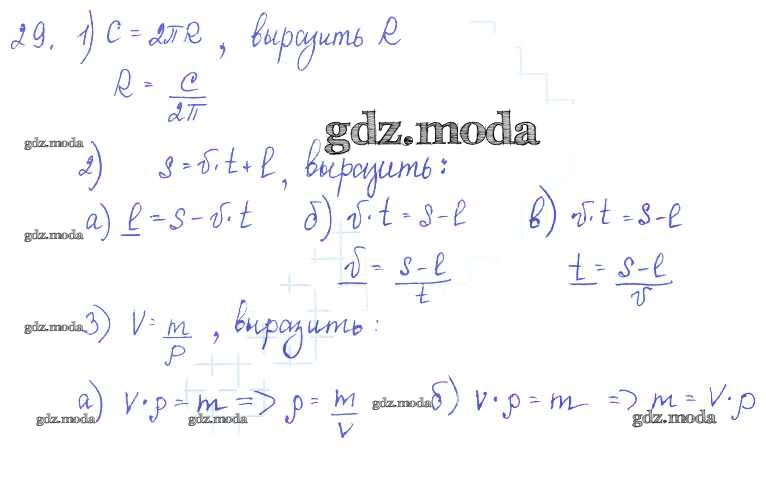 29. 1) C = 2πR, выразить R
R = C/2π
gdz.moda
gdz.moda
2) s = v·t + l, выразить:
gdz.moda
а) l = s - v·t б) v·t = s - l в) v·t = s - l
v = s - l/t t = s - l/v
gdz.moda
3) V = m/ρ, выразить:
а) V·ρ = m => ρ = m/V б) V·ρ = m => m = V·ρ
gdz.moda gdz.moda gdz.moda gdz.moda